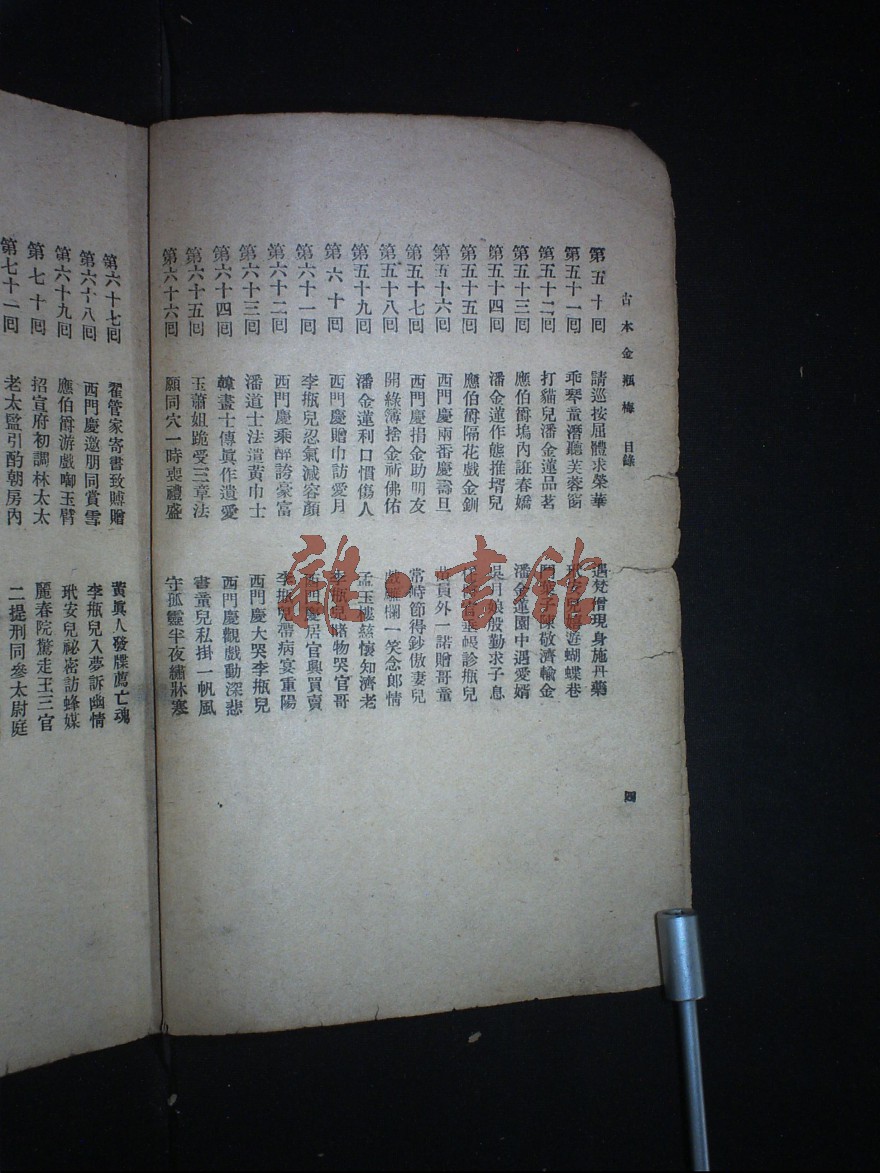 古本金瓶梅 目錄 四
第五十回 請巡按屈體求榮華 遇梵僧現身施丹藥
第五十一回 乖琴童潛聽芙蓉蔔 安 遊蝴蝶巷
第五十二回 打貓兒潘金蓮品茗 陳敬濟輸金
第五十三回 應伯爵塢內誑春嬌 潘金蓮園中遇愛婿
第五十四回 潘金蓮作態推壻兒 吳月娘殷勤求子息
第五十五回 應伯爵隔花戲金釧 垂帳診瓶兒
第五十六回 西門慶兩番慶壽旦 員外一諾贈哥童
第五十七回 西門慶捐金助朋友 常時節得鈔傲妻兒
第五十八回 開緣簿捨金祈佛佑 戲雕欄一笑念郎情
第五十九回 潘金蓮利口慣傷人 孟玉樓慈懷知濟老
第六十回 西門慶贈巾訪愛月 李瓶兒睹物哭官哥
第六十一回 李瓶兒忍氣減容顏 西門慶居官興買賣
第六十二回 西門慶乘醉誇豪富 李瓶兒帶病宴重陽
第六十三回 潘道士法遣黃巾士 西門慶大哭李瓶兒
第六十四回 韓畫士傳眞作遺愛 西門慶觀戲動深悲
第六十五回 玉蕭姐跪受三章法 書童兒私掛一帆風
第六十六回 願同穴一時喪禮盛 守孤靈半夜繡牀寒
第六十七回 翟管家寄書致賻贈 黃眞人發牒薦亡魂
第六十八回 西門慶邀朋同賞雪 李瓶兒入夢訴幽情
第六十九回 應伯爵游戲啣玉臂 玳安兒祕密訪蜂媒
第七十回 招宣府初調林太太 麗春院驚走王三官
第七十一回 老太監引酌朝房內 二提刑同參太尉庭
雜·書館